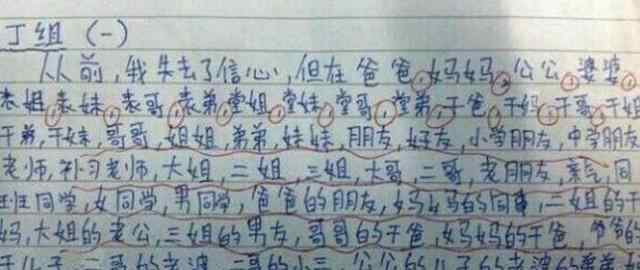 丁组 (一)
从前,我失去了信心,但在爸爸,妈妈,公公,婆婆,
表姐,表妹,表哥,表弟,堂姐,堂妹,堂哥,堂弟,干爸,干妈,干哥,干姐
干弟,干妹,哥哥,姐姐,弟弟,妹妹,朋友,好友,小学朋友,中学朋友
老师,补习老师,大姐,二姐,三姐,大哥,二哥,老朋友,亲戚,同
班同学,女同学,男同学,爸爸的朋友,妈妈的同事,二姐的干
妈,大姐的老公,三姐的男友,哥哥的干爸,妈妈的干爸,爷爷的
干儿子,二哥的老婆,二哥的小三,公公的儿子的老婆的弟弟